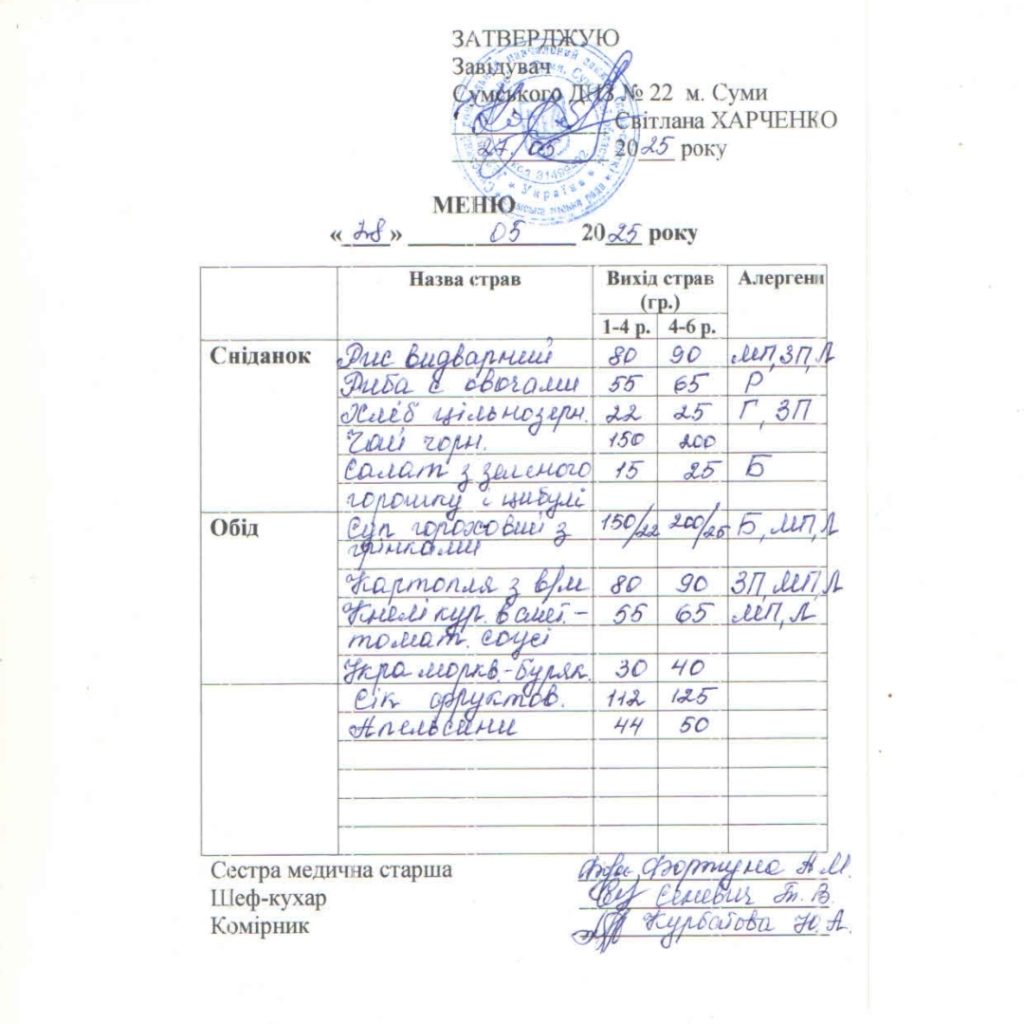 ЗАТВЕРДЖУЮ
Завідувач
Сумського ДНЗ № 22 м. Суми
Світлана ХАРЧЕНКО
27. 05 2025 року
МЕНЮ
« 28 » 05 2025 року
Назва страв Вихід страв (гр.) Алергени
1-4 р. 4-6 р.
Сніданок Рис видварний 80 90 МП, ЗП, Л
Риба с овочами 55 65 Р
Хліб цільнозерн. 22 25 Г, ЗП
Чай чорн. 150 200
Салат з зеленого 15 25 Б
горошку і цибулі
Обід Суп гороховий з 150/22 200/25 Б, МП, Л
грінками
Картопля з в/м 80 90 ЗП, МП, Л
Кнелі кур. в смет.- 55 65 МП, Л
томат. соусі
Ікра моркв.-буряк. 30 40
Сік фруктов. 112 125
Апельсини 44 50
Сестра медична старша Фортуна А.М.
Шеф-кухар Сеневич Т. В.
Комірник Курбатова Ю. А.